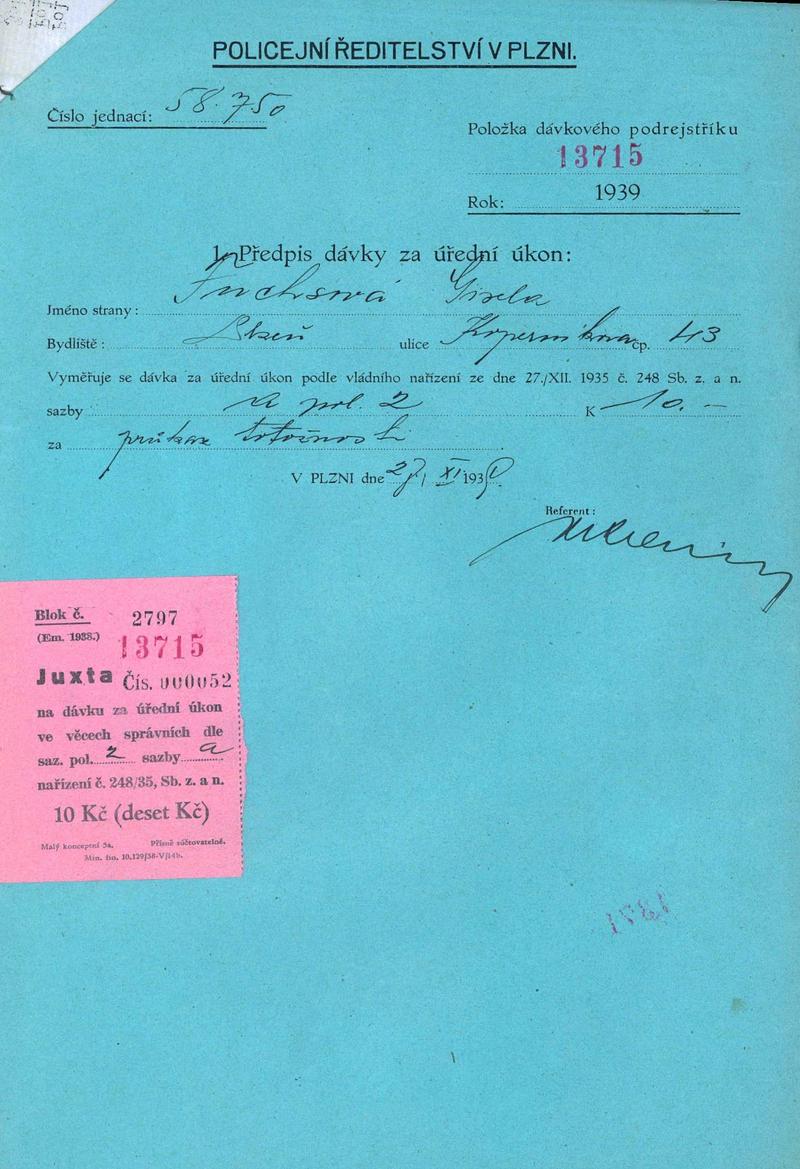 POLICEJNÍ ŘEDITELSTVÍ V PLZNI.
Číslo jednací: 58.750
Položka dávkového podrejstříku
13715
Rok: 1939
1. Předpis dávky za úřední úkon:
Jméno strany: Fuchsová Gisela
Bydliště: Plzeň ulice Koperníkova čp. 43
Vyměřuje se dávka za úřední úkon podle vládního nařízení ze dne 27./XII. 1935 č. 248 Sb. z. a n.
sazby a pol. 2 K 10.-
za průkaz totožnosti
V PLZNI dne 27. XI. 1939.
Referent:
Blok č. 2797
(Em. 1938.) 13715
Juxta Čís. 000052
na dávku za úřední úkon
ve věcech správních dle
saz. pol. 2 sazby a
nařízení č. 248/35, Sb. z. a n.
10 Kč (deset Kč)
Malý konceptní 5a. Přísně súčtovatelné.
Min. fin. 10.129/38-V/14b.